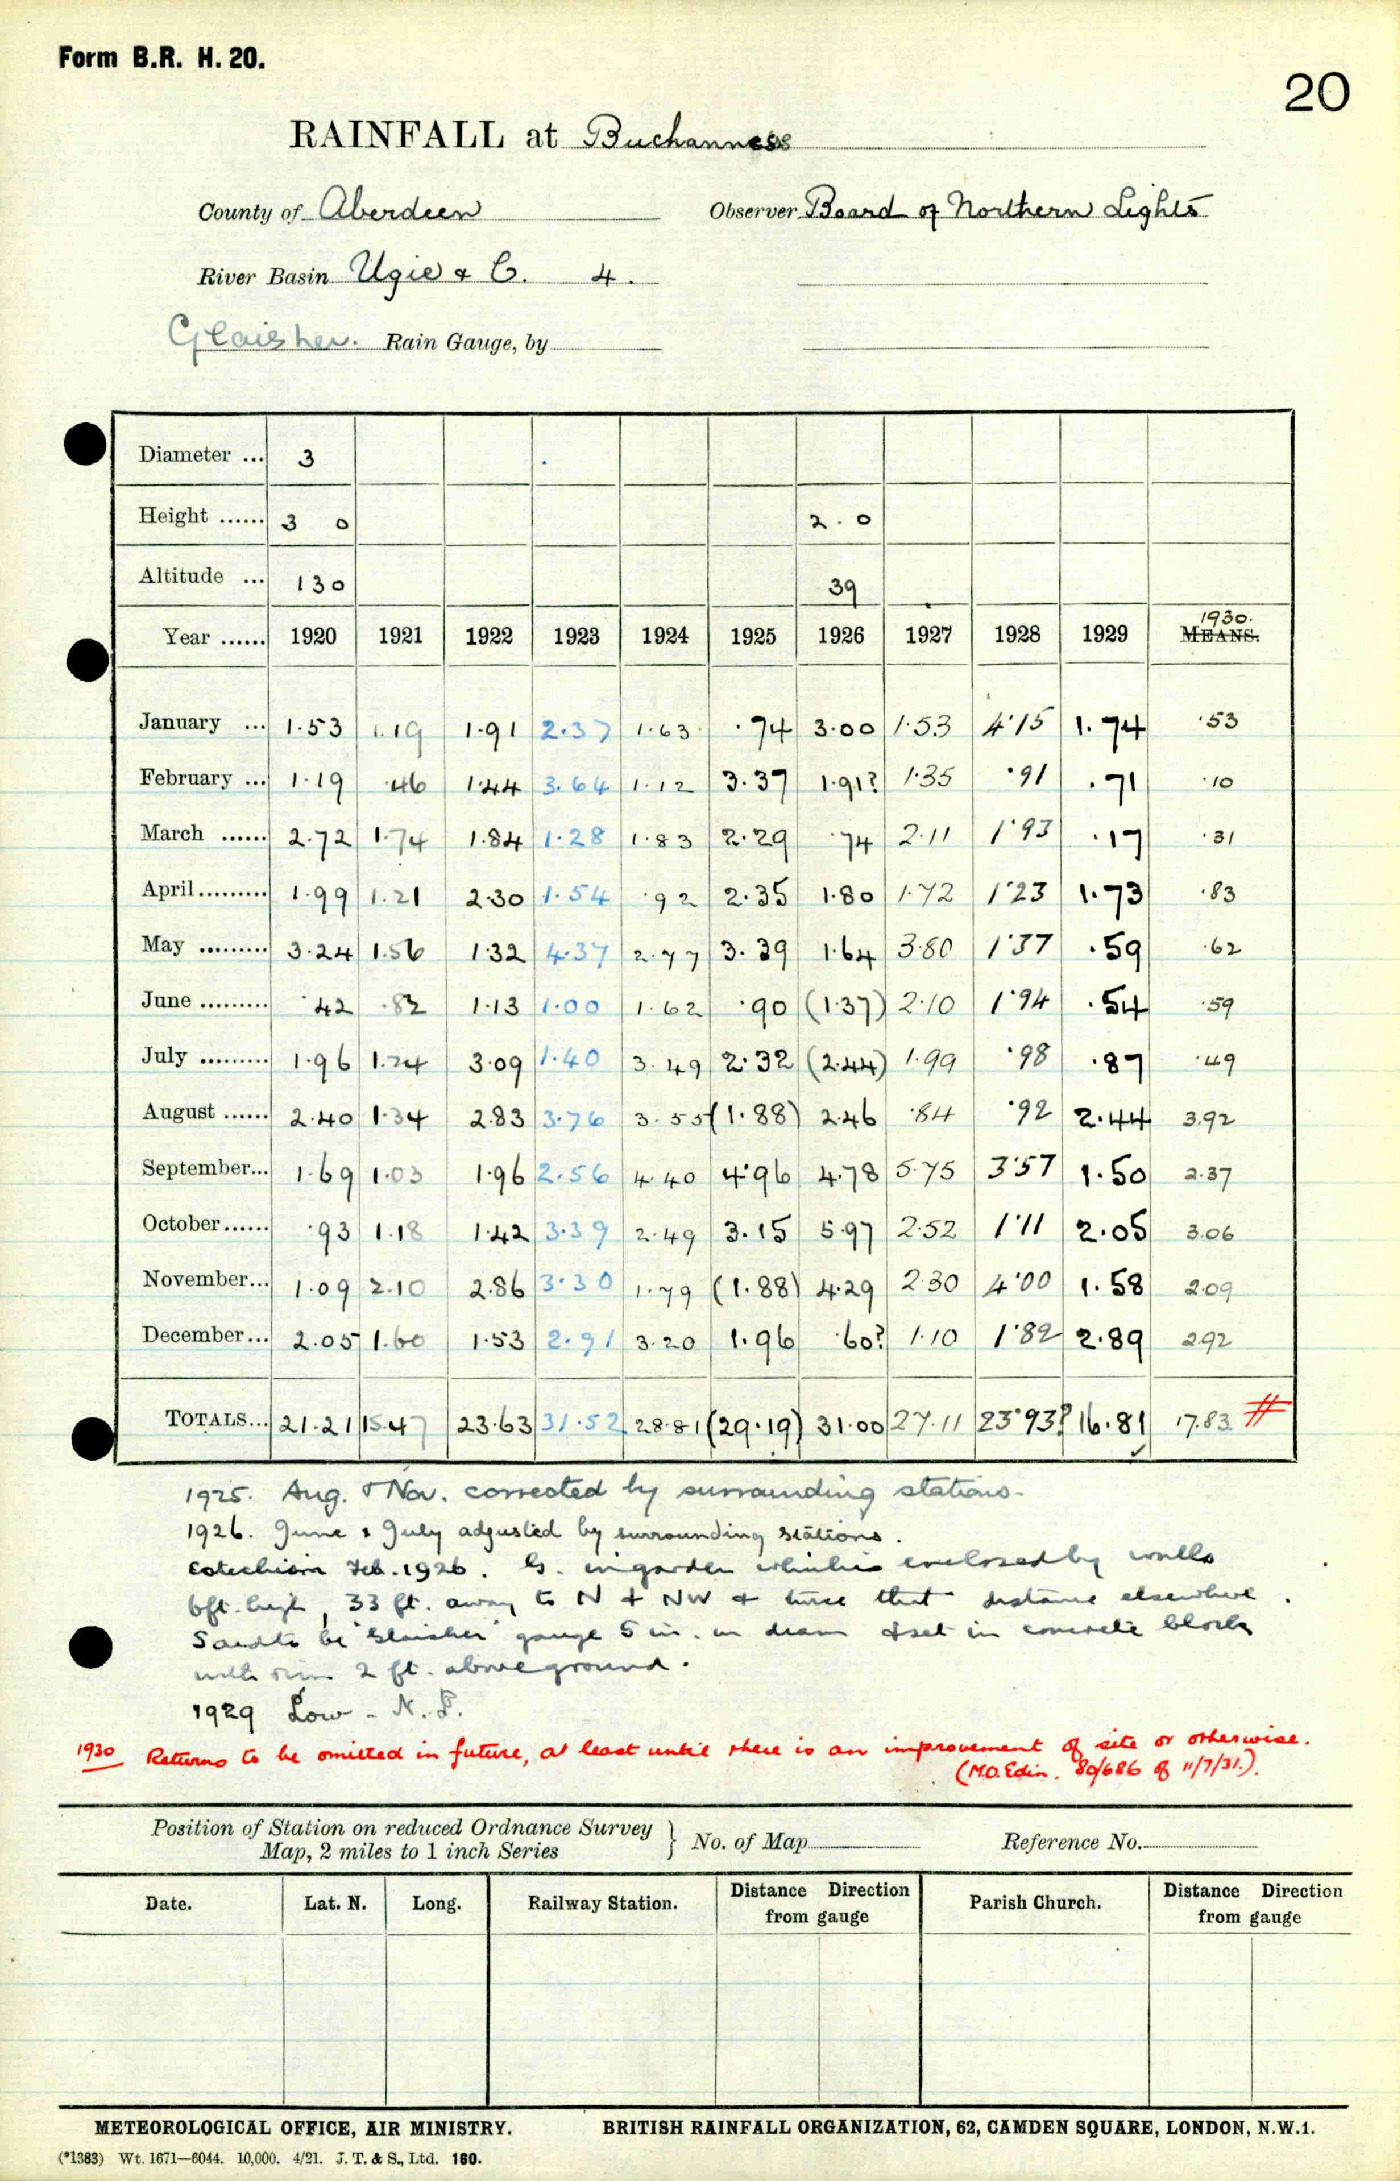 Form B.R. H. 20.
20
RAINFALL at Buchanness
County of Aberdeen Observer Board of Northern Lights
River Basin Ugie & C. 4.
Glaisher. Rain Gauge, by
Diameter ... 3
Height ...... 3 0 2.0
Altitude ... 130 39
1930.
Year ...... 1920 1921 1922 1923 1924 1925 1926 1927 1928 1929 MEANS.
January ... 1.53 1.19 1.91 2.37 1.63 .74 3.00 1.53 4.15 1.74 .53
February ... 1.19 .46 1.44 3.64 1.12 3.37 1.91? 1.35 .91 .71 .10
March ...... 2.72 1.74 1.84 1.28 1.83 2.29 .74 2.11 1.93 .17 .31
April ......... 1.99 1.21 2.30 1.54 .92 2.35 1.80 1.72 1.23 1.73 .83
May ......... 3.24 1.56 1.32 4.37 2.77 3.39 1.64 3.80 1.37 .59 .62
June ......... .42 .82 1.13 1.00 1.62 .90 (1.37) 2.10 1.94 .54 .59
July ......... 1.96 1.24 3.09 1.40 3.49 2.32 (2.44) 1.99 .98 .87 .49
August ...... 2.40 1.34 2.83 3.76 3.55 (1.88) 2.46 .84 .92 2.44 3.92
September... 1.69 1.03 1.96 2.56 4.40 4.96 4.78 5.75 3.57 1.50 2.37
October ...... .93 1.18 1.42 3.39 2.49 3.15 5.97 2.52 1.11 2.05 3.06
November... 1.09 2.10 2.86 3.30 1.79 (1.88) 4.29 2.30 4.00 1.58 2.09
December... 2.05 1.60 1.53 2.91 3.20 1.96 .60? 1.10 1.82 2.89 2.92
TOTALS... 21.21 15.47 23.63 31.52 28.81 (29.19) 31.00 27.11 23.93? 16.81 17.83 #
1925. Aug. & Nov. corrected by surrounding stations.
1926. June & July adjusted by surrounding stations.
Catechism Feb. 1926. G. in garden which is enclosed by walls
6ft. high, 33 ft. away to N & NW & twice that distance elsewhere.
Said to be "Glaisher" gauge 5 in. in diam & set in concrete block
with rim 2 ft. above ground.
1929 Low -
1930 Returns to be omitted in future, at least until there is an improvement of site or otherwise.
(M.O. Edin. 80/686 of 11/7/31.).
Position of Station on reduced Ordnance Survey Map, 2 miles to 1 inch Series } No. of Map Reference No.
Date. Lat. N. Long. Railway Station. Distance Direction from gauge Parish Church. Distance Direction from gauge
METEOROLOGICAL OFFICE, AIR MINISTRY. BRITISH RAINFALL ORGANIZATION, 62, CAMDEN SQUARE, LONDON, N.W.1.
(*1383) Wt. 1671—6044. 10,000. 4/21. J. T. & S., Ltd. 160.